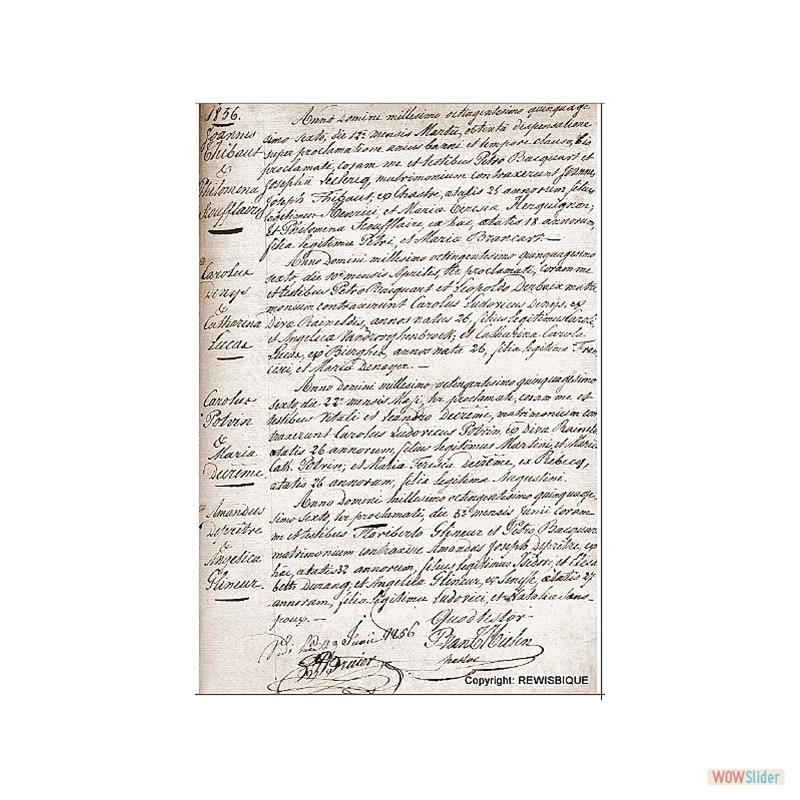 1856.
Joannes
Thibaut
&
Philomena
Stoufflaire
Anno Domini millesimo octingentesimo quinquage
simo sexto, die 12ª mensis Martii, obtenta dispensatione
super proclamatione unius banni et tempore clauso, bis
proclamati, coram me et testibus Petro Bacquart et
Josephii Leclercq, matrimonium contraxerunt Joannes
Joseph Thibaut, ex Chastre, ætatis 25 annorum, filius
legitimus Henrici, et Maria Teresa
et Philomena Stoufflaire, ex hac, ætatis 18 annorum,
filia legitima Petri, et Maria Brancart.—
Carolus
Denys
&
Catharina
Lucas
Anno Domini millesimo octingentesimo quinquagesimo
sexto, die 10ª mensis Aprilis, ter proclamati, coram me
et testibus Petro Bacquart et Leopoldo matri
monium contraxerunt Carolus Ludovicus Denys, ex
Diva Raineldis, annos natus 26, filius legitimus Caroli,
et Angelica et Catharina Carola
ex Bierghes, annos nata 26, filia legitima Fran
cisci, et Maria Deneyer.—
Carolus
Potvin
&
Maria
Decrême
Anno Domini millesimo octingentesimo quinquagesimo
sexto, die 22ª mensis Maji, ter proclamati, coram me et
testibus Vitali et Leandro Decreme, matrimonium con
traxerunt Carolus Ludovicus Potvin, ex Diva Raineldi
ætatis 26 annorum, filius legitimus Martini, et Maria
Cath. Potvin; et Maria Teresis Decrême, ex Rebecq,
ætatis 26 annorum, filia legitima Augustini.
Amandus
Depritre
&
Angelica
Glineur.
Anno Domini millesimo octingentesimo quinquage,
simo sexto, ter proclamati, die mensis Junii coram
me et testibus Floriberto Glineur et Petro Bacquart
matrimonium contraxere Amandus Joseph Depritre, ex
hac, ætatis 32 annorum, filius legitimus Isidori, et Elisa
beth et Angelica Glineur, ex ætatis 27
annorum, filia legitima Ludovici, et Natalia Sans
poux.—
Quod testor
Junii 1856
pastor
Copyright: REWISBIQUE
WOWSlider